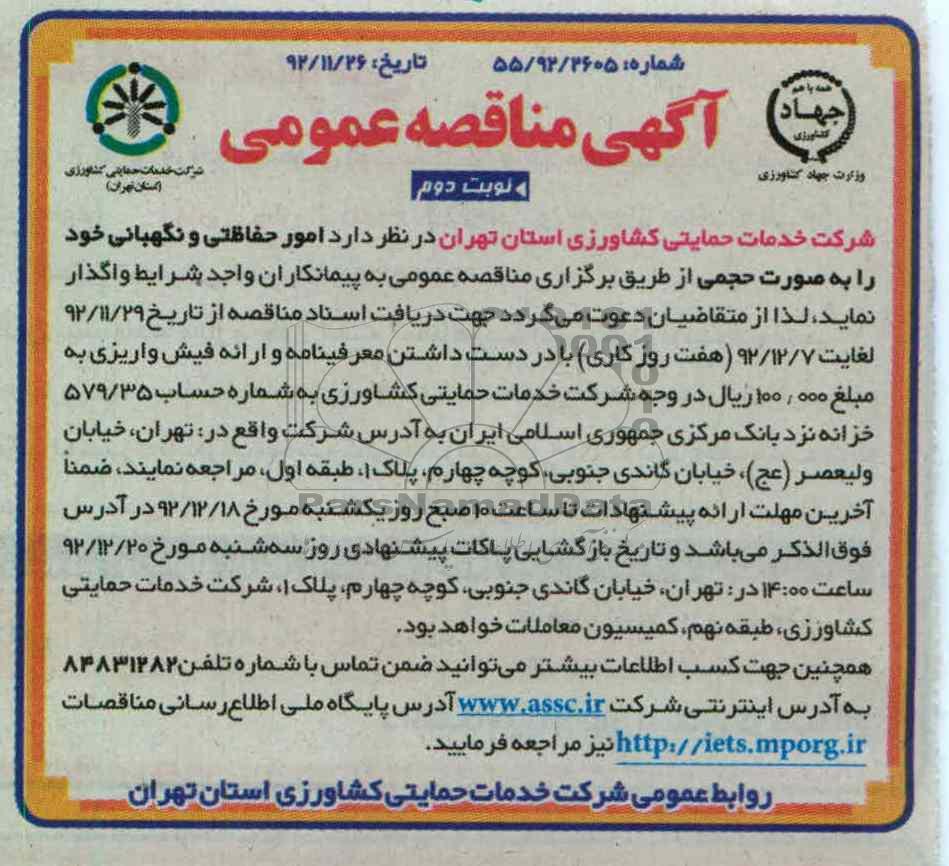 شماره: ۵۵/۹۲/۲۶۰۵ تاریخ: ۹۲/۱۱/۲۶
همه با هم
جهاد
کشاورزی
وزارت جهاد کشاورزی
آگهی مناقصه عمومی
شرکت خدمات حمایتی کشاورزی
(استان تهران)
نوبت دوم
شرکت خدمات حمایتی کشاورزی استان تهران در نظر دارد امور حفاظتی و نگهبانی خود
را به صورت حجمی از طریق برگزاری مناقصه عمومی به پیمانکاران واجد شرایط واگذار
نماید، لذا از متقاضیان دعوت می‌گردد جهت دریافت اسناد مناقصه از تاریخ ۹۲/۱۱/۲۹
لغایت ۹۲/۱۲/۷ (هفت روز کاری) با در دست داشتن معرفینامه و ارائه فیش واریزی به
مبلغ ۱۰۰,۰۰۰ ریال در وجه شرکت خدمات حمایتی کشاورزی به شماره حساب ۵۷۹/۳۵
خزانه نزد بانک مرکزی جمهوری اسلامی ایران به آدرس شرکت واقع در: تهران، خیابان
ولیعصر (عج)، خیابان گاندی جنوبی، کوچه چهارم، پلاک ۱، طبقه اول، مراجعه نمایند، ضمناً
آخرین مهلت ارائه پیشنهادات تا ساعت ۱۰ صبح روز یکشنبه مورخ ۹۲/۱۲/۱۸ در آدرس
فوق‌الذکر می‌باشد و تاریخ بازگشایی پاکات پیشنهادی روز سه‌شنبه مورخ ۹۲/۱۲/۲۰
ساعت ۱۴:۰۰ در: تهران، خیابان گاندی جنوبی، کوچه چهارم، پلاک ۱، شرکت خدمات حمایتی
کشاورزی، طبقه نهم، کمیسیون معاملات خواهد بود.
همچنین جهت کسب اطلاعات بیشتر می‌توانید ضمن تماس با شماره تلفن ۸۴۸۳۱۲۸۲
به آدرس اینترنتی شرکت www.assc.ir آدرس پایگاه ملی اطلاع‌رسانی مناقصات
http://iets.mporg.ir نیز مراجعه فرمایید.
روابط عمومی شرکت خدمات حمایتی کشاورزی استان تهران
ParsNamadData